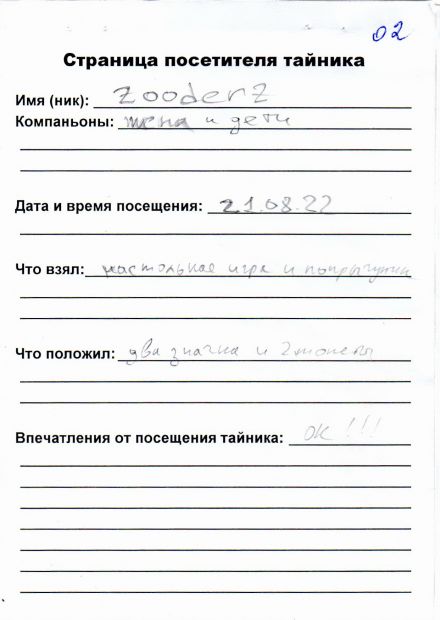 02
Страница посетителя тайника
Имя (ник): ZooderZ
Компаньоны: жена и дети
Дата и время посещения: 21.08.22
Что взял: настольная игра и попрыгунчик
Что положил: два значка и 2 монеты
Впечатления от посещения тайника: ок!!!